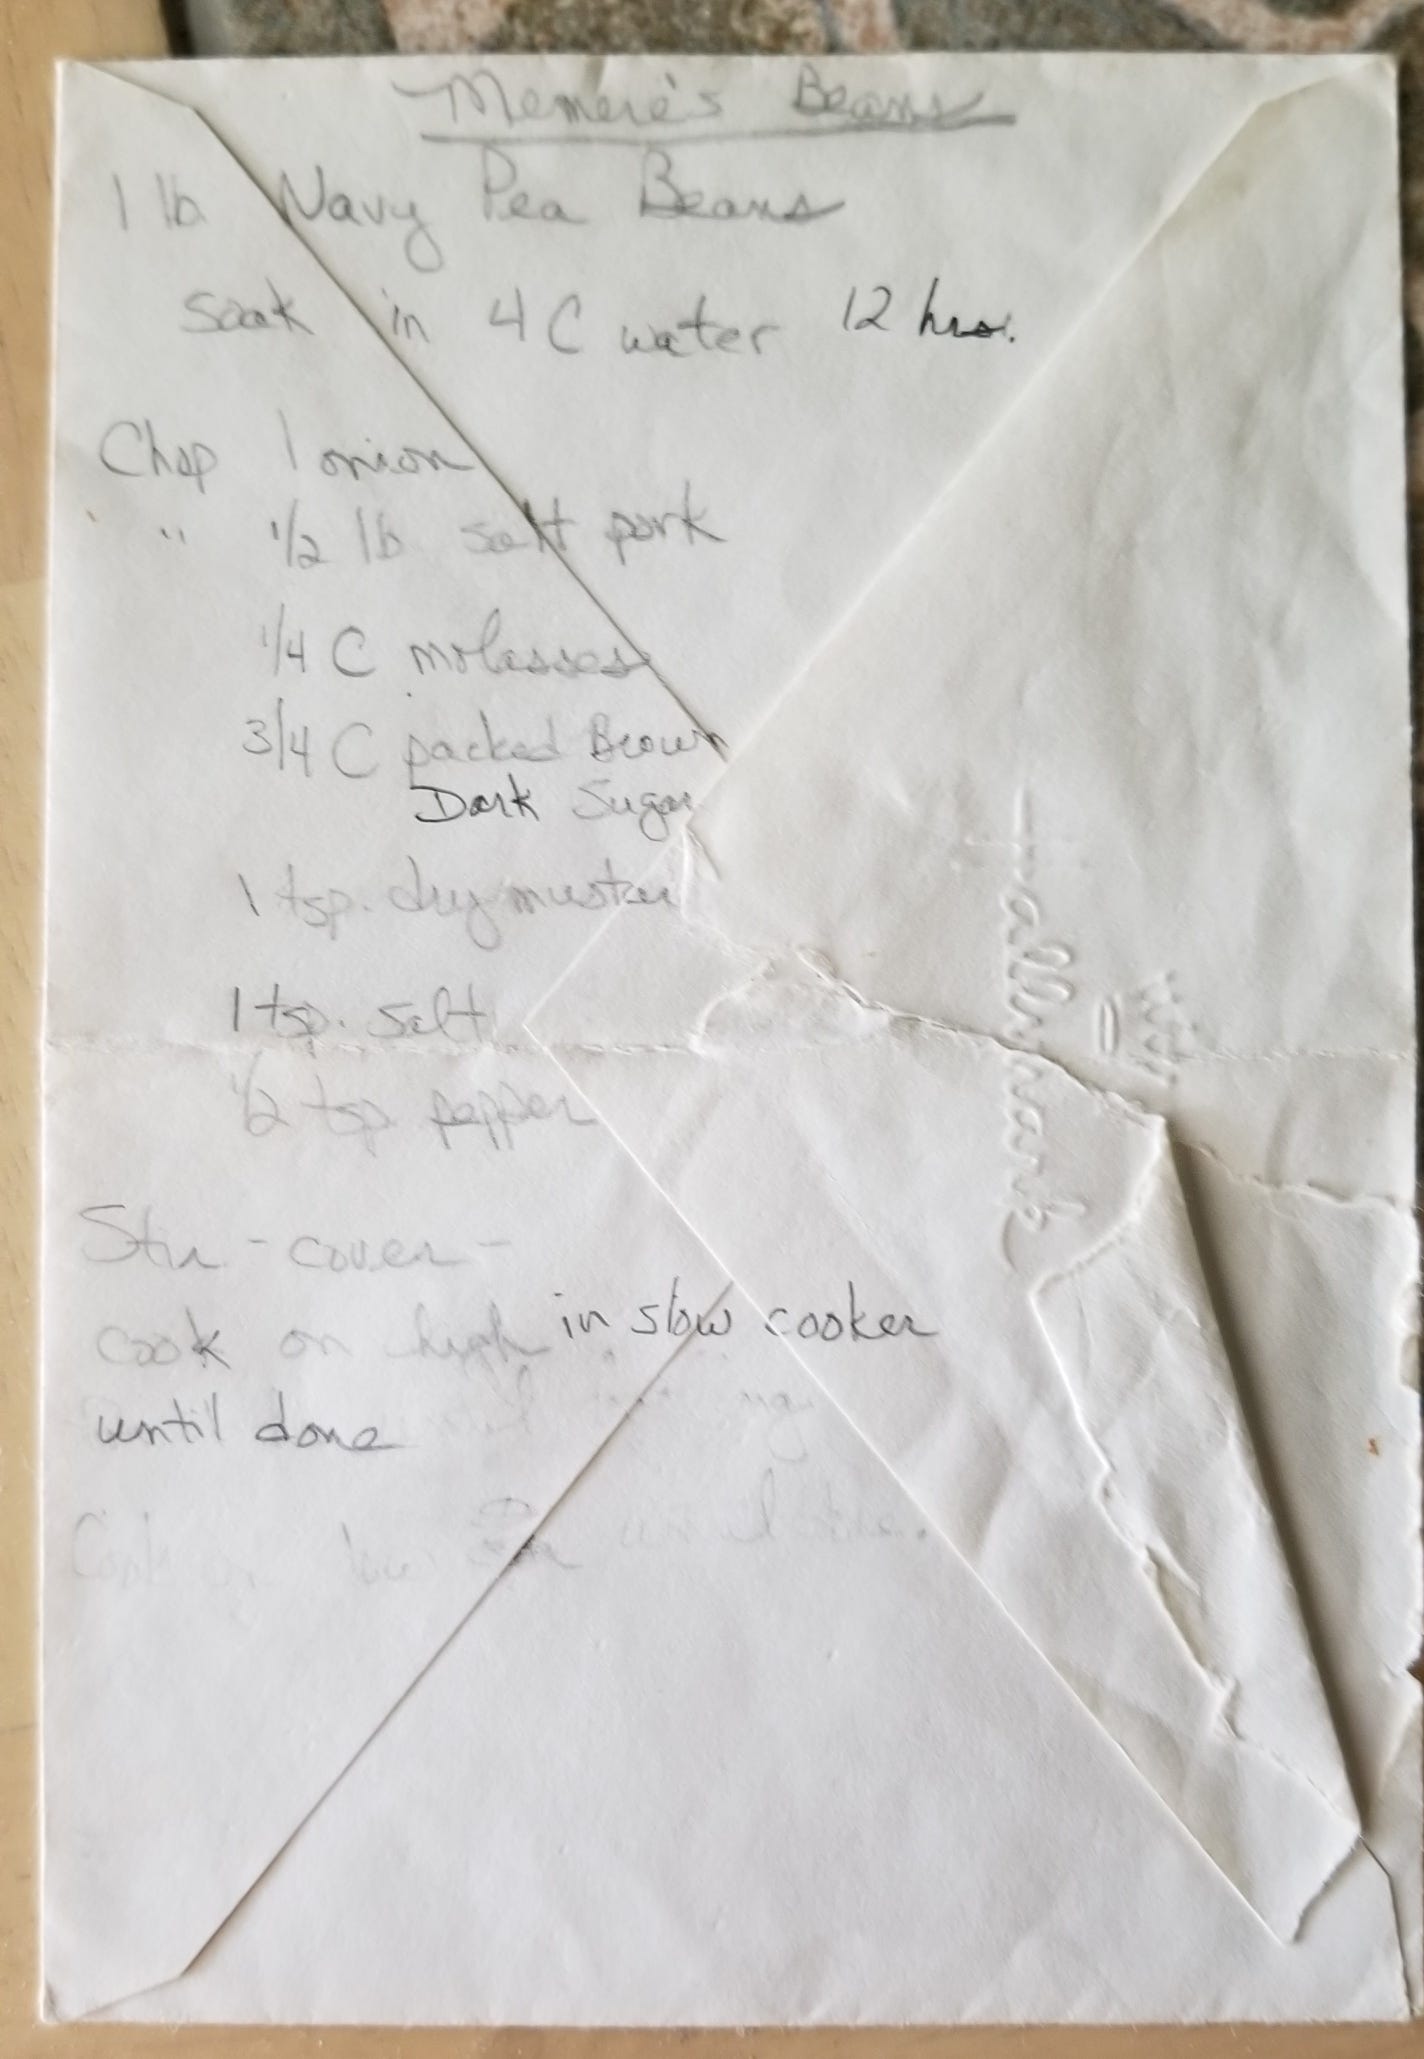 Memere's Beans
1 lb Navy Pea Beans
soak in 4 C water 12 hrs.
Chop 1 onion
" 1/2 lb salt pork
1/4 C molasses
3/4 C packed Brown
Dark Sugar
1 tsp. dry mustar
1 tsp. salt
1/2 tsp pepper
Stir - cover -
cook on high in slow cooker
until done
Cook low until
Hallmark